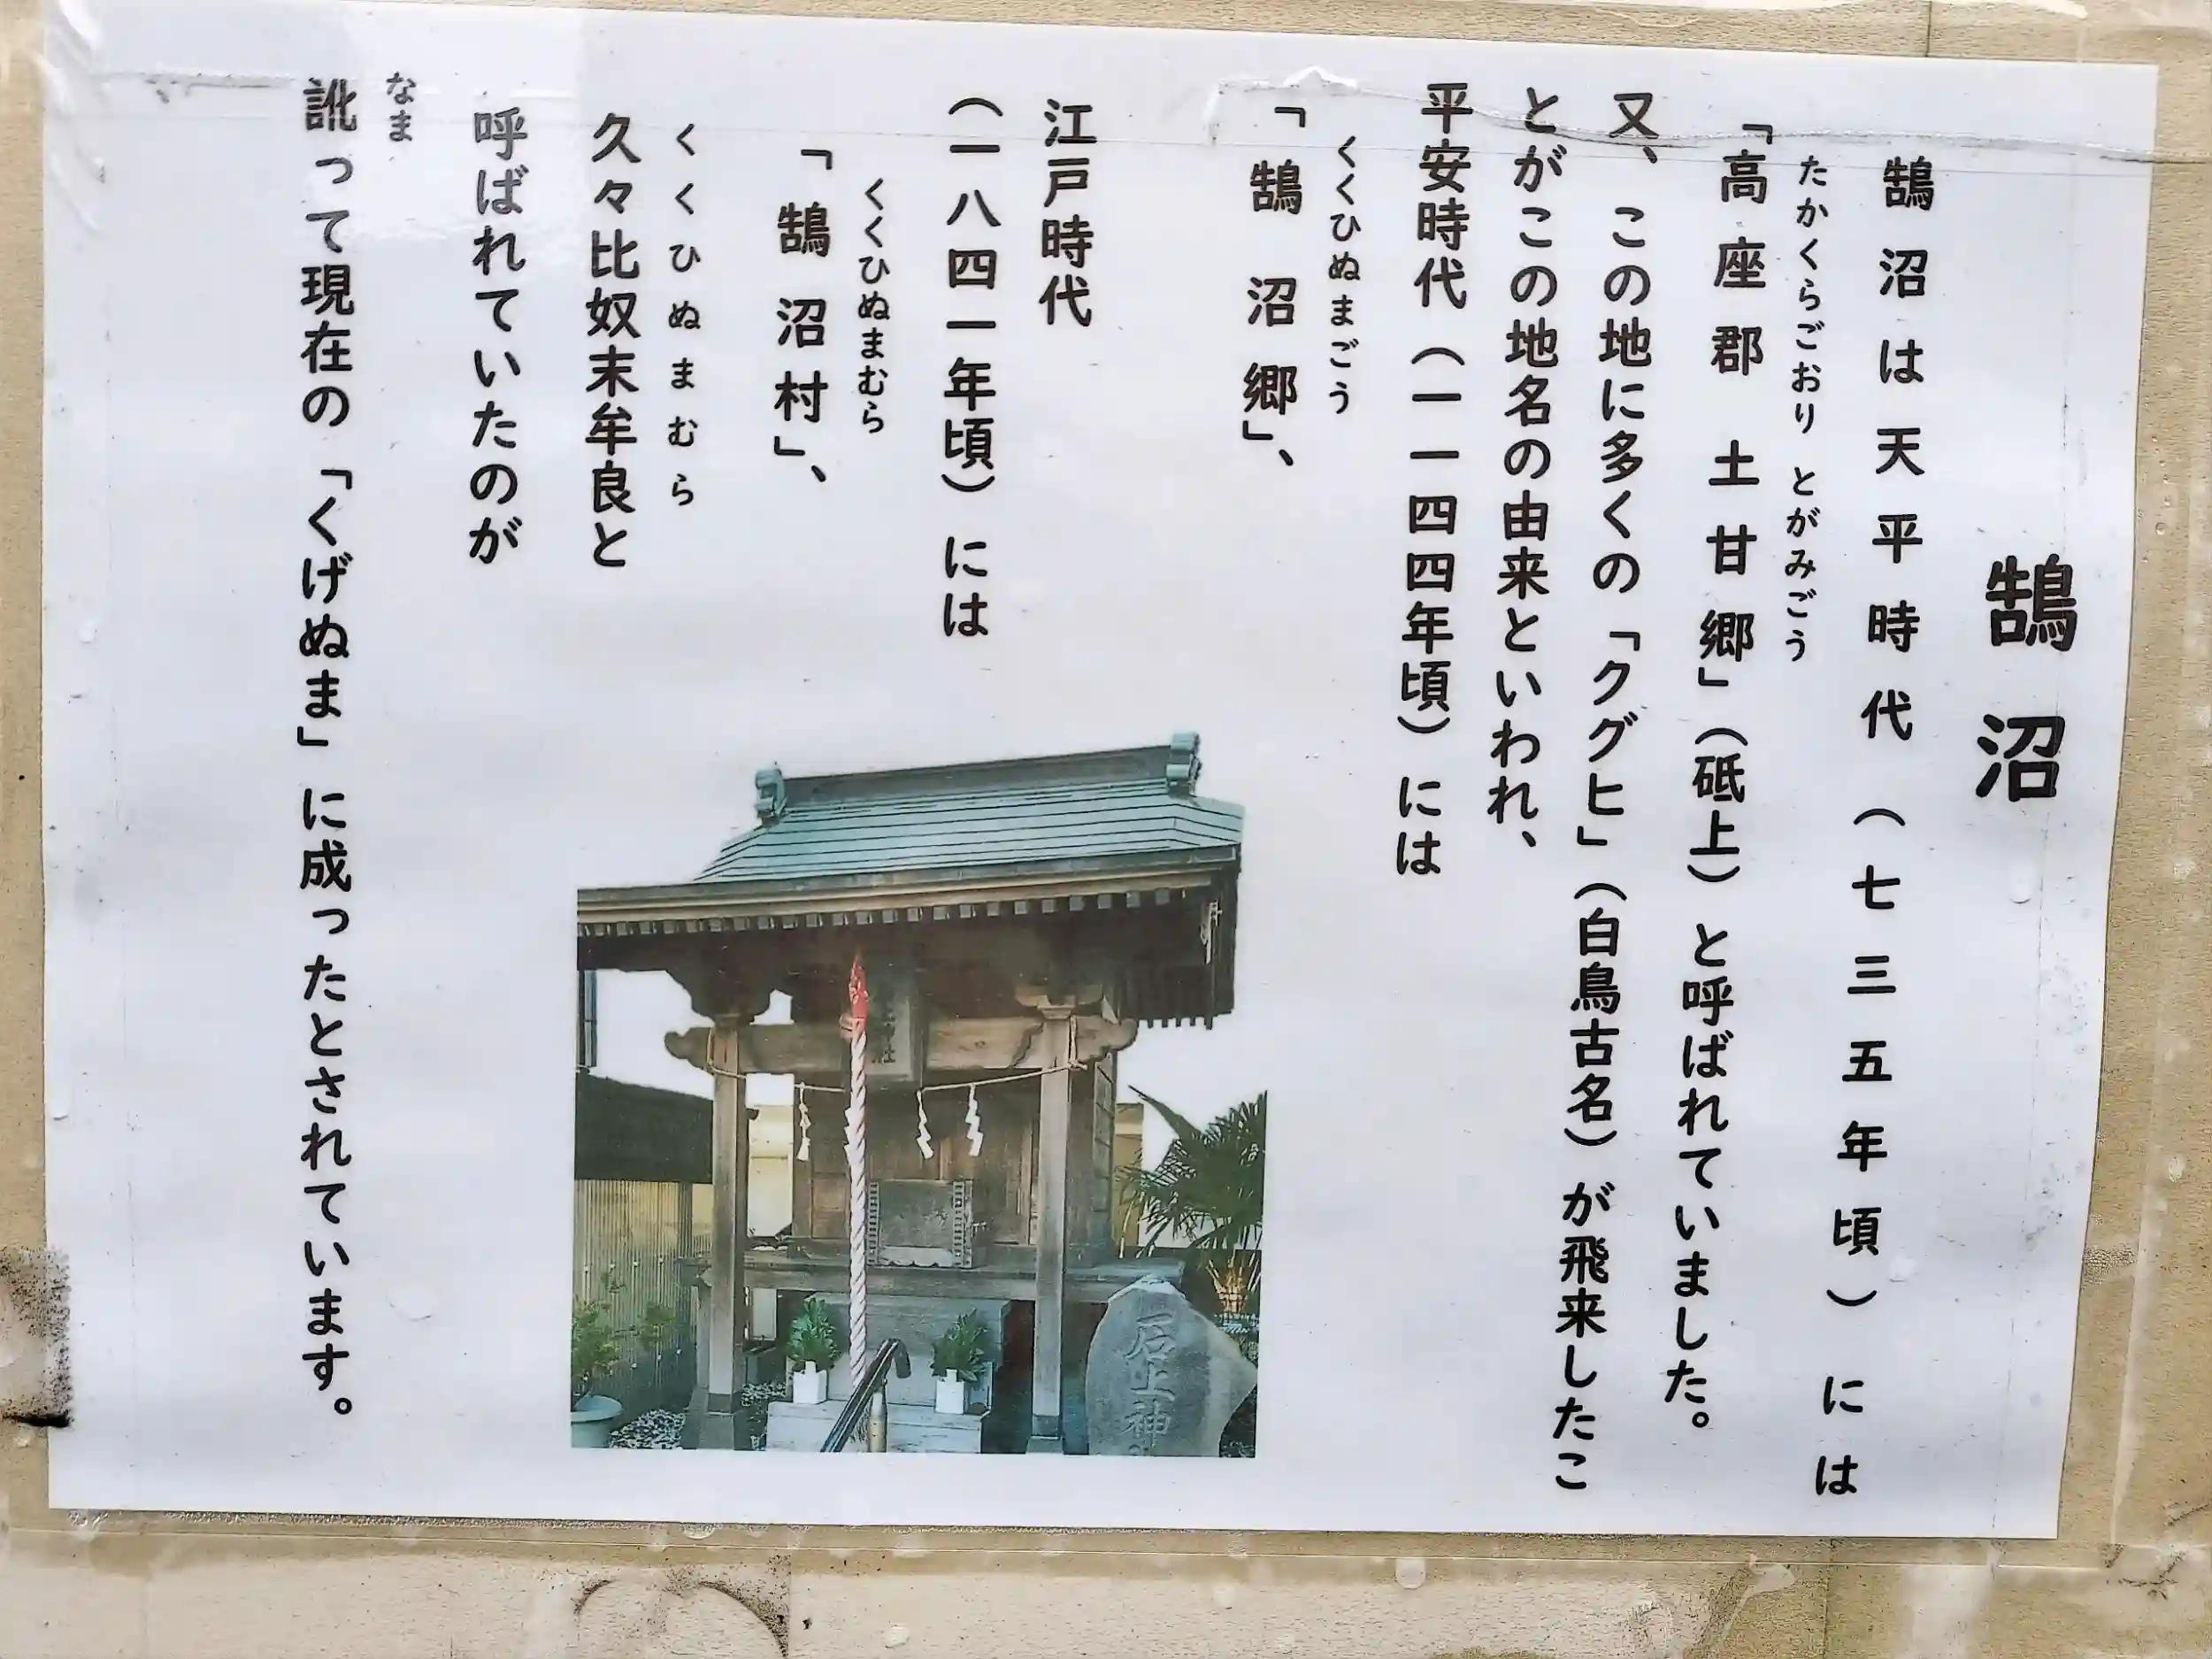 鵠沼
鵠沼は天平時代（七三五年頃）には
たかくらごおり とがみごう
「高座郡 土甘郷」（砥上）と呼ばれていました。
又、この地に多くの「クグヒ」（白鳥古名）が飛来したこ
とがこの地名の由来といわれ、
平安時代（一一四四年頃）には
くくひぬまごう
「鵠沼郷」、
江戸時代
（一八四一年頃）には
くくひぬまむら
「鵠沼村」、
くくひぬまむら
久々比奴末牟良と
呼ばれていたのが
なま
訛って現在の「くげぬま」に成ったとされています。
石上神